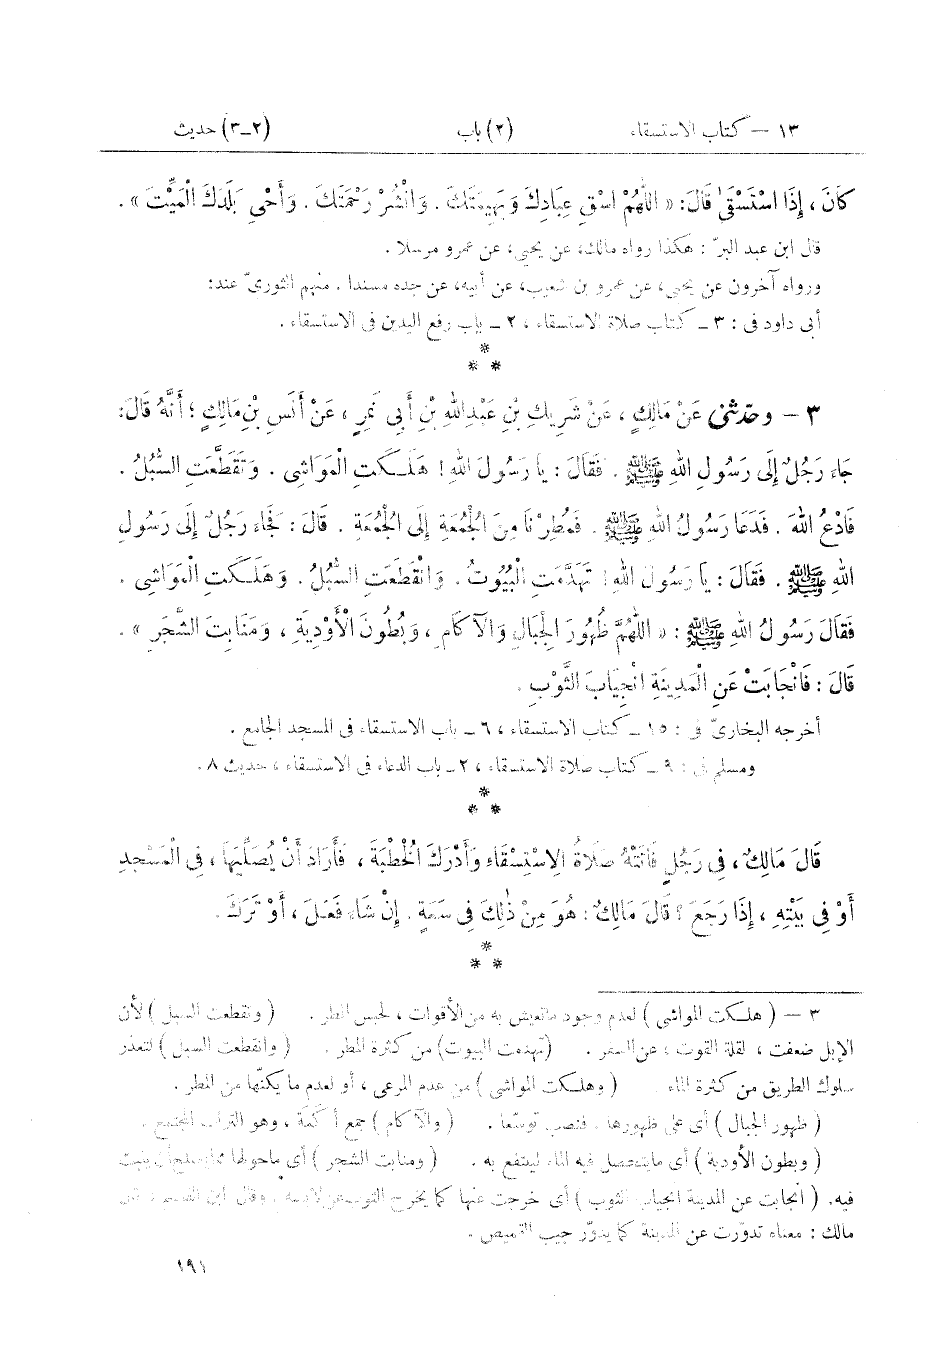 ١٣ — كتاب الاستسقاء (٢) باب (٢ـ٣) حديث
كَانَ ، إِذَا اسْتَسْقَىٰ قَالَ : « اللّٰهُمَّ اسْقِ عِبَادِكَ وَبَهِيمَتَكَ . وَانْشُرْ رَحْمَتَكَ . وَأَحْيِ بَلَدَكَ الْمَيِّتَ » .
قال ابن عبد البرّ : هكذا رواه مالك، عن يحيى، عن عمرو مرسلا .
ورواه آخرون عن يحيى، عن عمرو بن شعيب، عن أبيه، عن جده مسندا . منهم الثوريّ عند :
أبى داود فى : ٣ ـ كتاب صلاة الاستسقاء ، ٢ ـ باب رفع اليدين فى الاستسقاء .
*
* *
٣ — وحدّثنى عَنْ مَالِكٍ ، عَنْ شَرِيكِ بْنِ عَبْدِاللهِ بْنِ أَبِى نَمِرٍ ، عَنْ أَنَسِ بْنِ مَالِكٍ ؛ أَنَّهُ قَالَ :
جَاءَ رَجُلٌ إِلَى رَسُولِ اللهِ ﷺ . فَقَالَ : يَا رَسُولَ اللهِ ! هَلَـكَتِ الْمَوَاشِى . وَتَقَطَّعَتِ السُّبُلُ .
فَادْعُ اللهَ . فَدَعَا رَسُولُ اللهِ ﷺ . فَمُطِرْنَا مِنَ الْجُمُعَةِ إِلَى الْجُمُعَةِ . قَالَ : فَجَاءَ رَجُلٌ إِلَى رَسُولِ
اللهِ ﷺ . فَقَالَ : يَا رَسُولَ اللهِ ! تَهَدَّمَتِ الْبُيُوتُ . وَانْقَطَعَتِ السُّبُلُ . وَهَلَـكَتِ الْمَوَاشِى .
فَقَالَ رَسُولُ اللهِ ﷺ : « اللّٰهُمَّ ظُهُورَ الْجِبَالِ وَالْآكَامِ ، وَبُطُونَ الْأَوْدِيَةِ ، وَمَنَابِتَ الشَّجَرِ » .
قَالَ : فَانْجَابَتْ عَنِ الْمَدِينَةِ انْجِيَابَ الثَّوْبِ .
أخرجه البخارىّ فى : ١٥ ـ كتاب الاستسقاء ، ٦ ـ باب الاستسقاء فى المسجد الجامع .
ومسلم فى : ٩ ـ كتاب صلاة الاستسقاء ، ٢ ـ باب الدعاء فى الاستسقاء ، حديث ٨ .
*
* *
قَالَ مَالِكٌ ، فِى رَجُلٍ فَاتَتْهُ صَلَاةُ الِاسْتِسْقَاءِ وَأَدْرَكَ الْخُطْبَةَ ، فَأَرَادَ أَنْ يُصَلِّيَهَا ، فِى الْمَسْجِدِ
أَوْ فِى بَيْتِهِ ، إِذَا رَجَعَ ؟ قَالَ مَالِكٌ : هُوَ مِنْ ذٰلِكَ فِى سَعَةٍ . إِنْ شَاءَ فَعَلَ ، أَوْ تَرَكَ .
*
* *
٣ — ( هلـكت المواشى ) لعدم وجود ماتعيش به من الأقوات ، لحبس المطر . ( وتقطعت السبل ) لأن
الإبل ضعفت ، لقلة القوت ، عن السفر . (تهدمت البيوت) من كثرة المطر . ( وانقطعت السبل ) لتعذر
سلوك الطريق من كثرة الماء . ( وهلـكت المواشى ) من عدم المرعى ، أو لعدم ما يكنّها من المطر .
( ظهور الجبال ) أى على ظهورها . فنصب توسّعا . ( والآكام ) جمع أكمة ، وهو التراب المجتمع .
( وبطون الأودية ) أى مايتحصل فيه الماء لينتفع به . ( ومنابت الشجر ) أى ماحولها مما يصلح أن ينبت
فيه. ( انجابت عن المدينة انجياب الثوب ) أى خرجت عنها كما يخرج الثوب عن لابسه . وقال ابن القاسم ، قال
مالك : معناه تدوّرت عن المدينة كما يدوّر جيب القميص .
١٩١